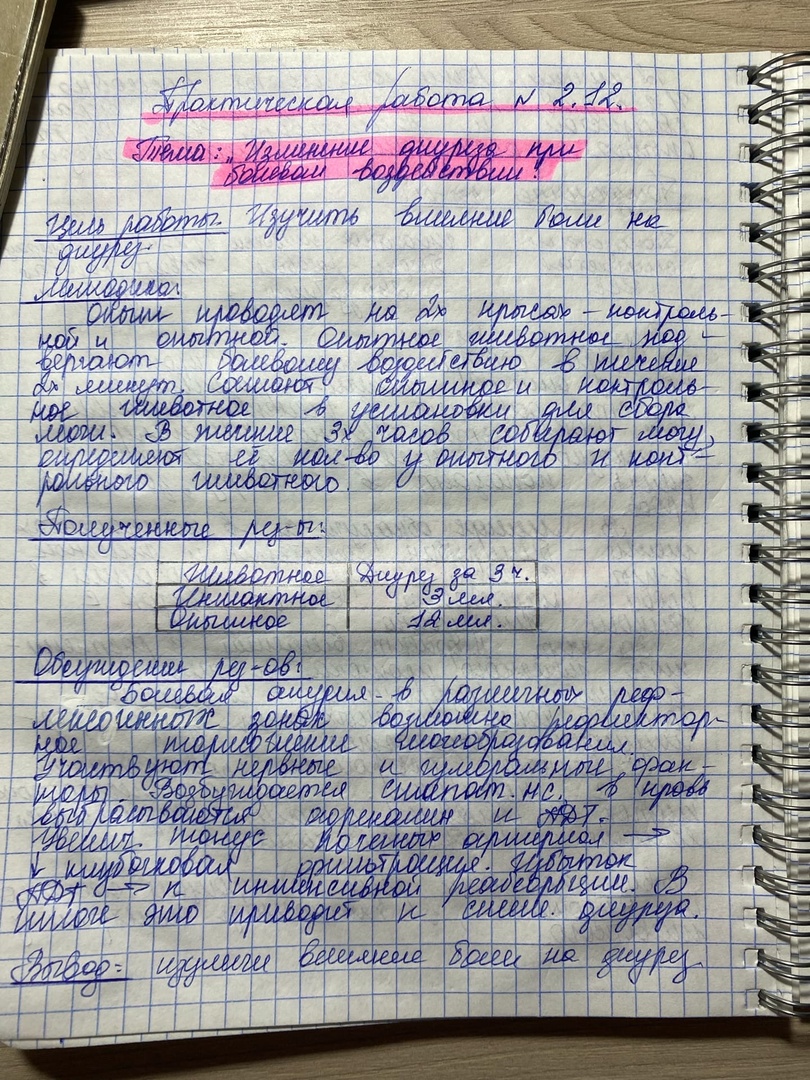 Практическая работа N 2.12.
Тема: „Изменение диуреза при
болевом воздействии".
Цель работы: Изучить влияние боли на
диурез.
Методика:
Опыт проводят на 2х крысах - контроль-
ной и опытной. Опытное животное под-
вергают болевому воздействию в течение
2х минут. Сажают опытное и контроль-
ное животное в установки для сбора
мочи. В течение 3х часов собирают мочу,
определяют её кол-во у опытного и конт-
рольного животного.
Полученные рез-ы:
Животное Диурез за 3 ч.
Интактное 3 мл.
Опытное 12 мл.
Обсуждение рез-ов:
Болевая анурия - в различных реф-
лексогенных зонах возможно рефлектор-
ное торможение мочеобразования.
Участвуют нервные и гуморальные фак-
торы. Возбуждается симпат. нс. в кровь
выбрасываются адреналин и АДГ.
Увелич. тонус почечных артериол →
↓ клубочковая фильтрация. Избыток
АДГ → к интенсивной реабсорбции. В
итоге это приводит к сниже. диуреза.
Вывод: изучили влияние боли на диурез